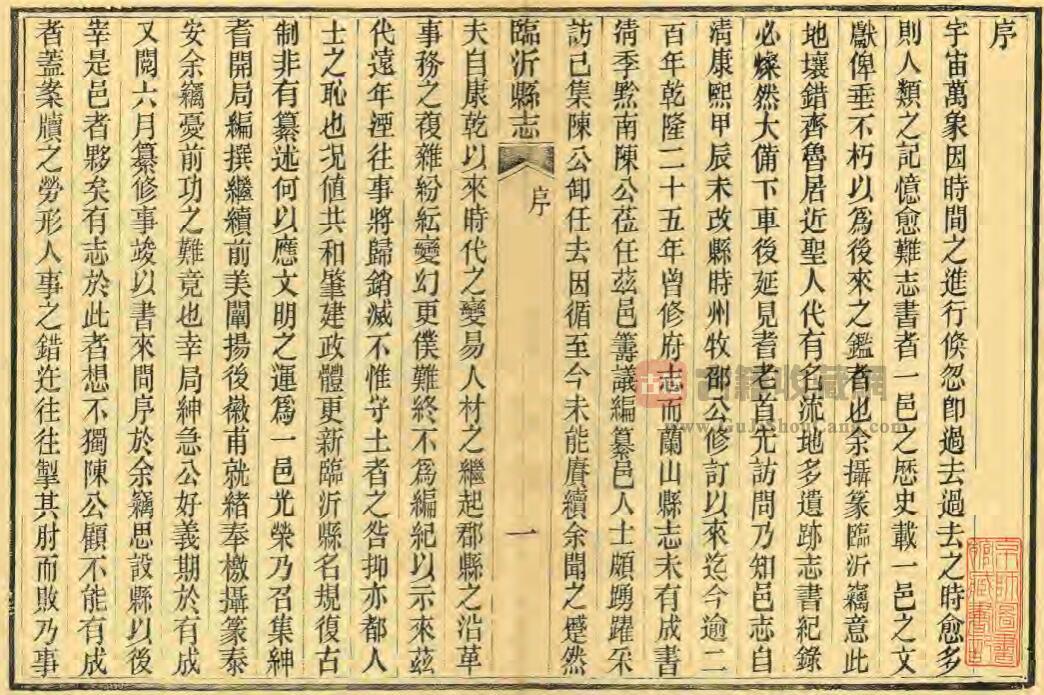 序
宇宙萬象因時間之進行倏忽卽過去過去之時愈多
則人類之記憶愈難志書者一邑之歷史載一邑之文
獻俾垂不朽以爲後來之鑑者也余攝篆臨沂竊意此
地壤錯齊魯居近聖人代有名流地多遺跡志書紀錄
必燦然大備下車後延見耆老首先訪問乃知邑志自
淸康熙甲辰未改縣時州牧邵公修訂以來迄今逾二
百年乾隆二十五年曾修府志而蘭山縣志未有成書
淸季黔南陳公蒞任茲邑籌議編纂邑人士頗踴躍采
訪已集陳公卸任去因循至今未能賡續余聞之蹙然
臨沂縣志
序
一
夫自康乾以來時代之變易人材之繼起郡縣之沿革
事務之複雜紛紜變幻更僕難終不爲編紀以示來茲
代遠年湮往事將歸銷滅不惟守土者之咎抑亦都人
士之恥也況値共和肇建政體更新臨沂縣名規復古
制非有纂述何以應文明之運爲一邑光榮乃召集紳
耆開局編撰繼續前美闡揚後徽甫就緒奉檄攝篆泰
安余竊憂前功之難竟也幸局紳急公好義期於有成
又閱六月纂修事竣以書來問序於余竊思設縣以後
宰是邑者夥矣有志於此者想不獨陳公顧不能有成
者蓋案牘之勞形人事之錯迕往往掣其肘而敗乃事
古籍收藏網
www.GuJiShouCang.com